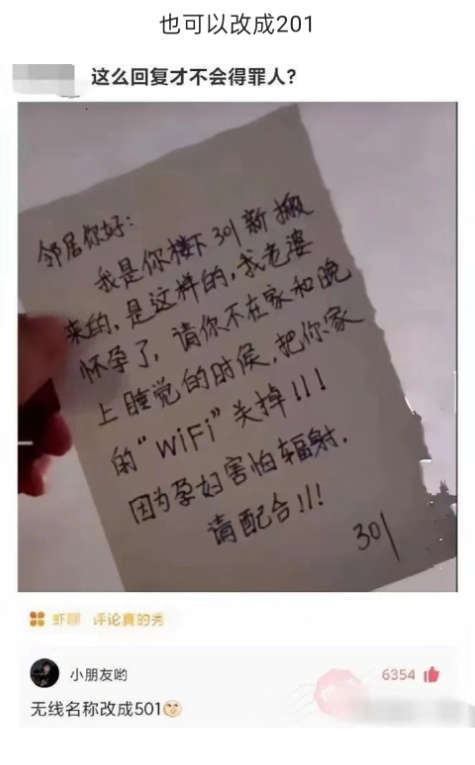 也可以改成201
这么回复才不会得罪人?
邻居你好:
我是你楼下301新搬
来的,是这样的,我老婆
怀孕了,请你不在家和晚
上睡觉的时候,把你家
的“WiFi”关掉!!!
因为孕妇害怕辐射.
请配合!!!
301
虾聊 评论真的秀
小朋友哟
6354
无线名称改成501